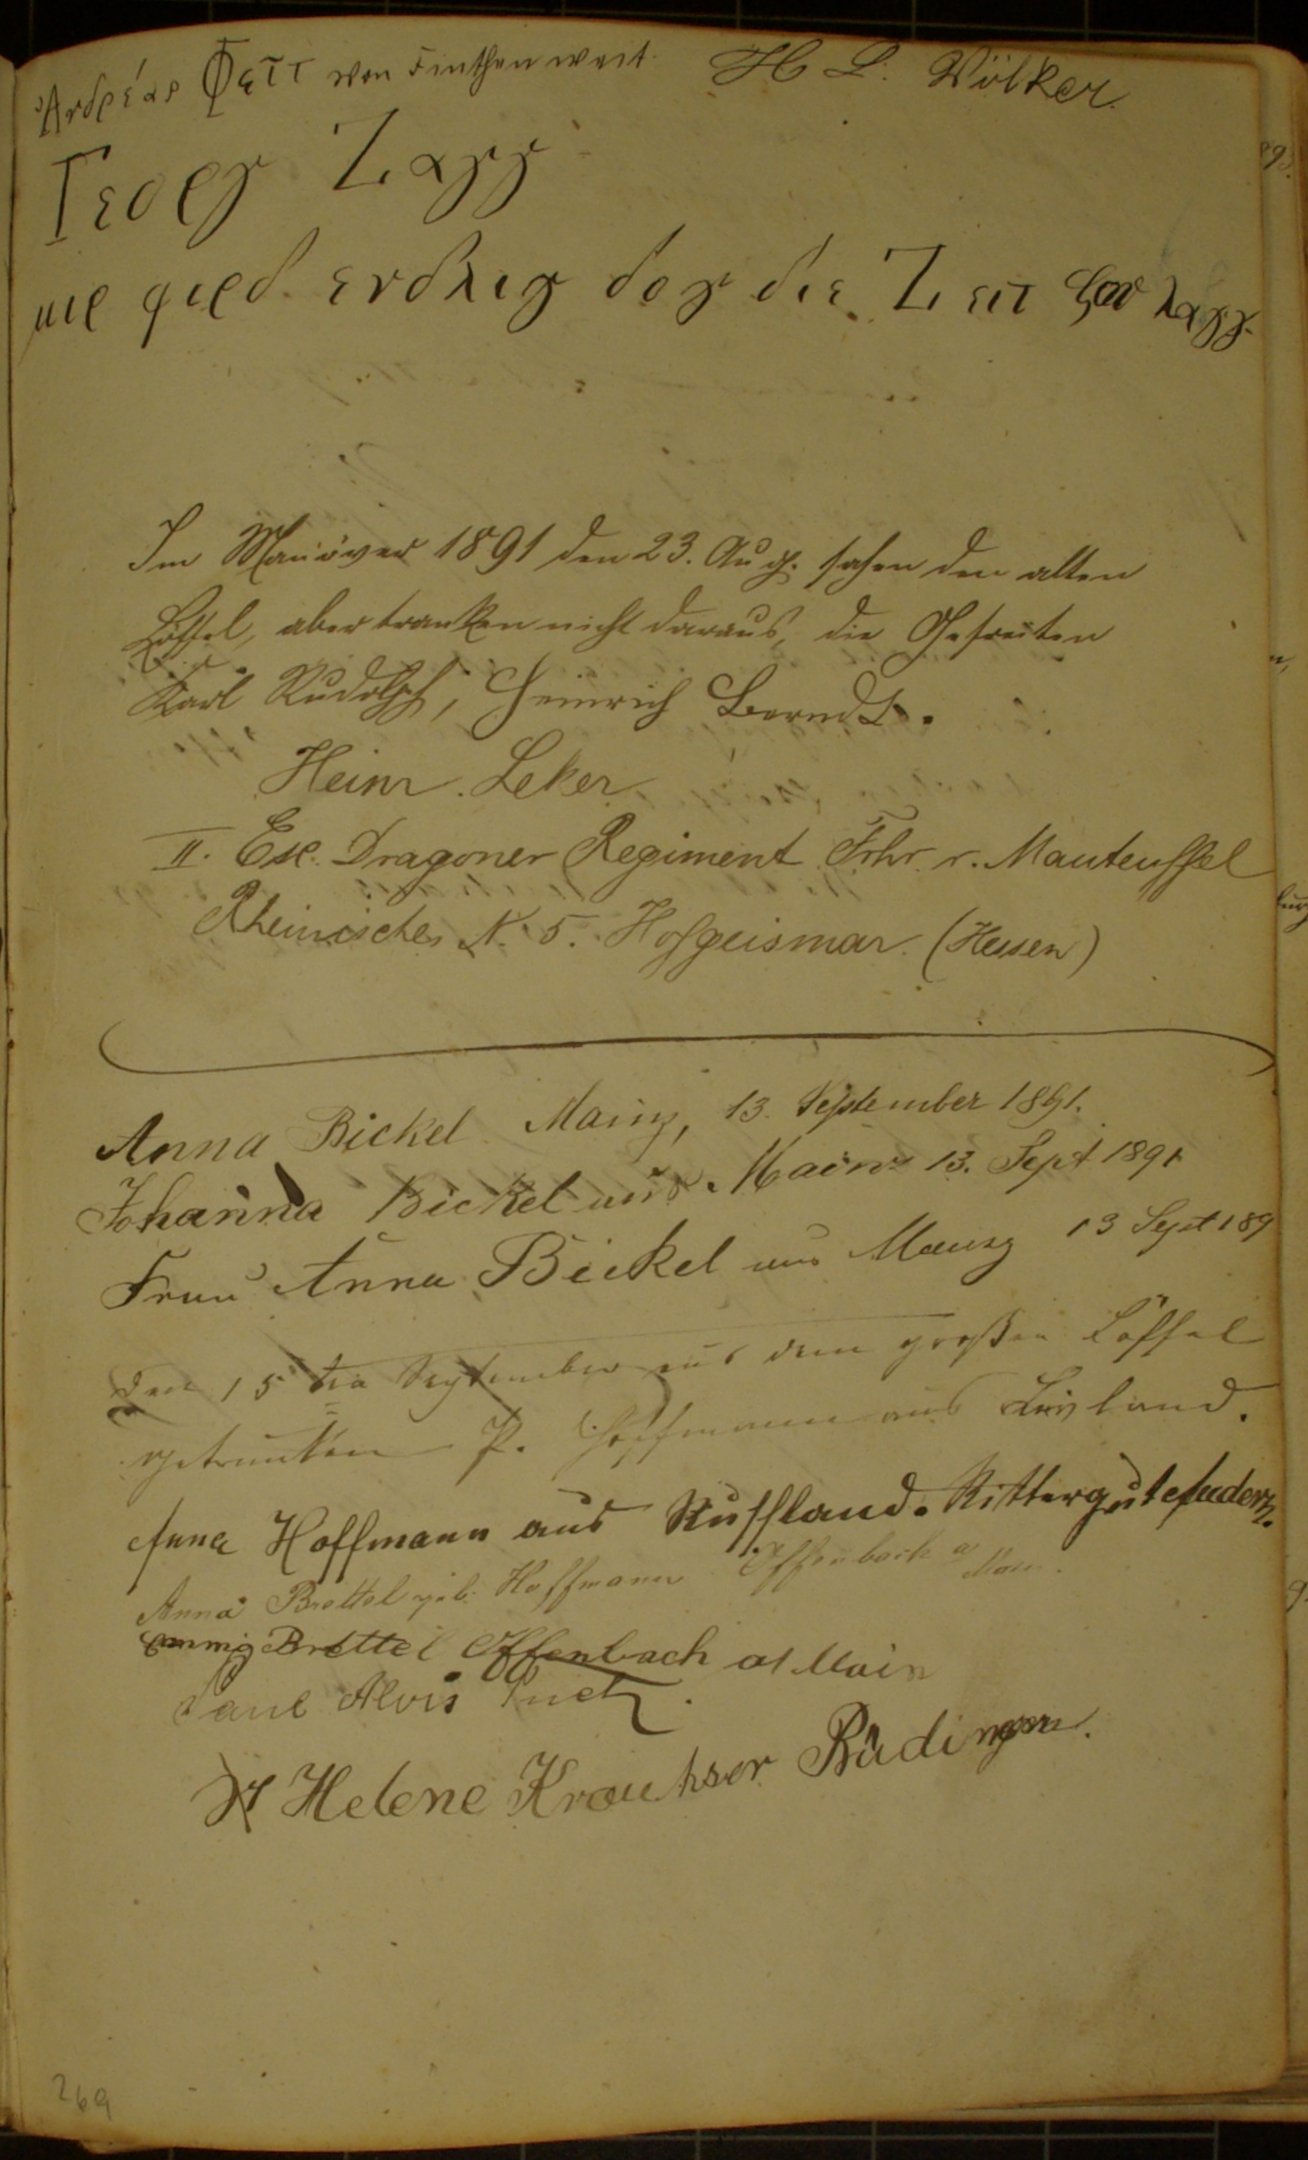 Ἀνδρέας Φεττ von Finthen weit. H. L. Völker.
Γεοργ Ζαγγ
μιρ φιρδ ενδλιγ δογ διε Ζειτ ζου λαγγ.
Im Manöver 1891 den 23. Aug. sahen den alten
Löffel, aber tranken nicht daraus, die Gefreiten
Karl Rudolph, Heinrich Berndt.
Heinr. Leker
II. Esc. Dragoner Regiment Frhr. v. Manteuffel
Rheinisches N. 5. Hofgeismar. (Hessen)
Anna Bickel Mainz, 13. September 1891.
Johanna Bickel aus Mainz 13. Sept 1891
Frau Anna Bickel aus Mainz 13 Sept 189
Den 15ten September aus dem großen Löffel
getrunken P. Hoffmann aus Livland.
Anna Hoffmann aus Russland.
Anna Brettel geb. Hoffmann Offenbach a Main.
Emmy Brettel Offenbach a/ Main
Paul Alois
Helene Krauhser Büdingen.
269